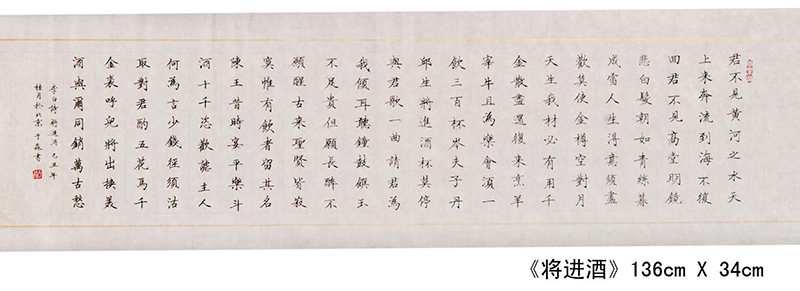 君不見黃河之水天
上来奔流到海不復
回君不見高堂明鏡
悲白髮朝如青絲暮
成雪人生得意須盡
歡莫使金樽空對月
天生我材必有用千
金散盡還復来烹羊
宰牛且為樂會須一
飲三百杯岑夫子丹
邱生將進酒杯莫停
與君歌一曲請君為
我傾耳聽鐘鼓饌玉
不足貴但願長醉不
願醒古来聖賢皆寂
寞惟有飲者留其名
陳王昔時宴平樂斗
酒十千恣歡謔主人
何為言少錢徑須沽
取對君酌五花馬千
金裘呼兒將出換美
酒與爾同銷萬古愁
李白詩將進酒己丑年
桂月於北京于森書
《将进酒》136cm X 34cm